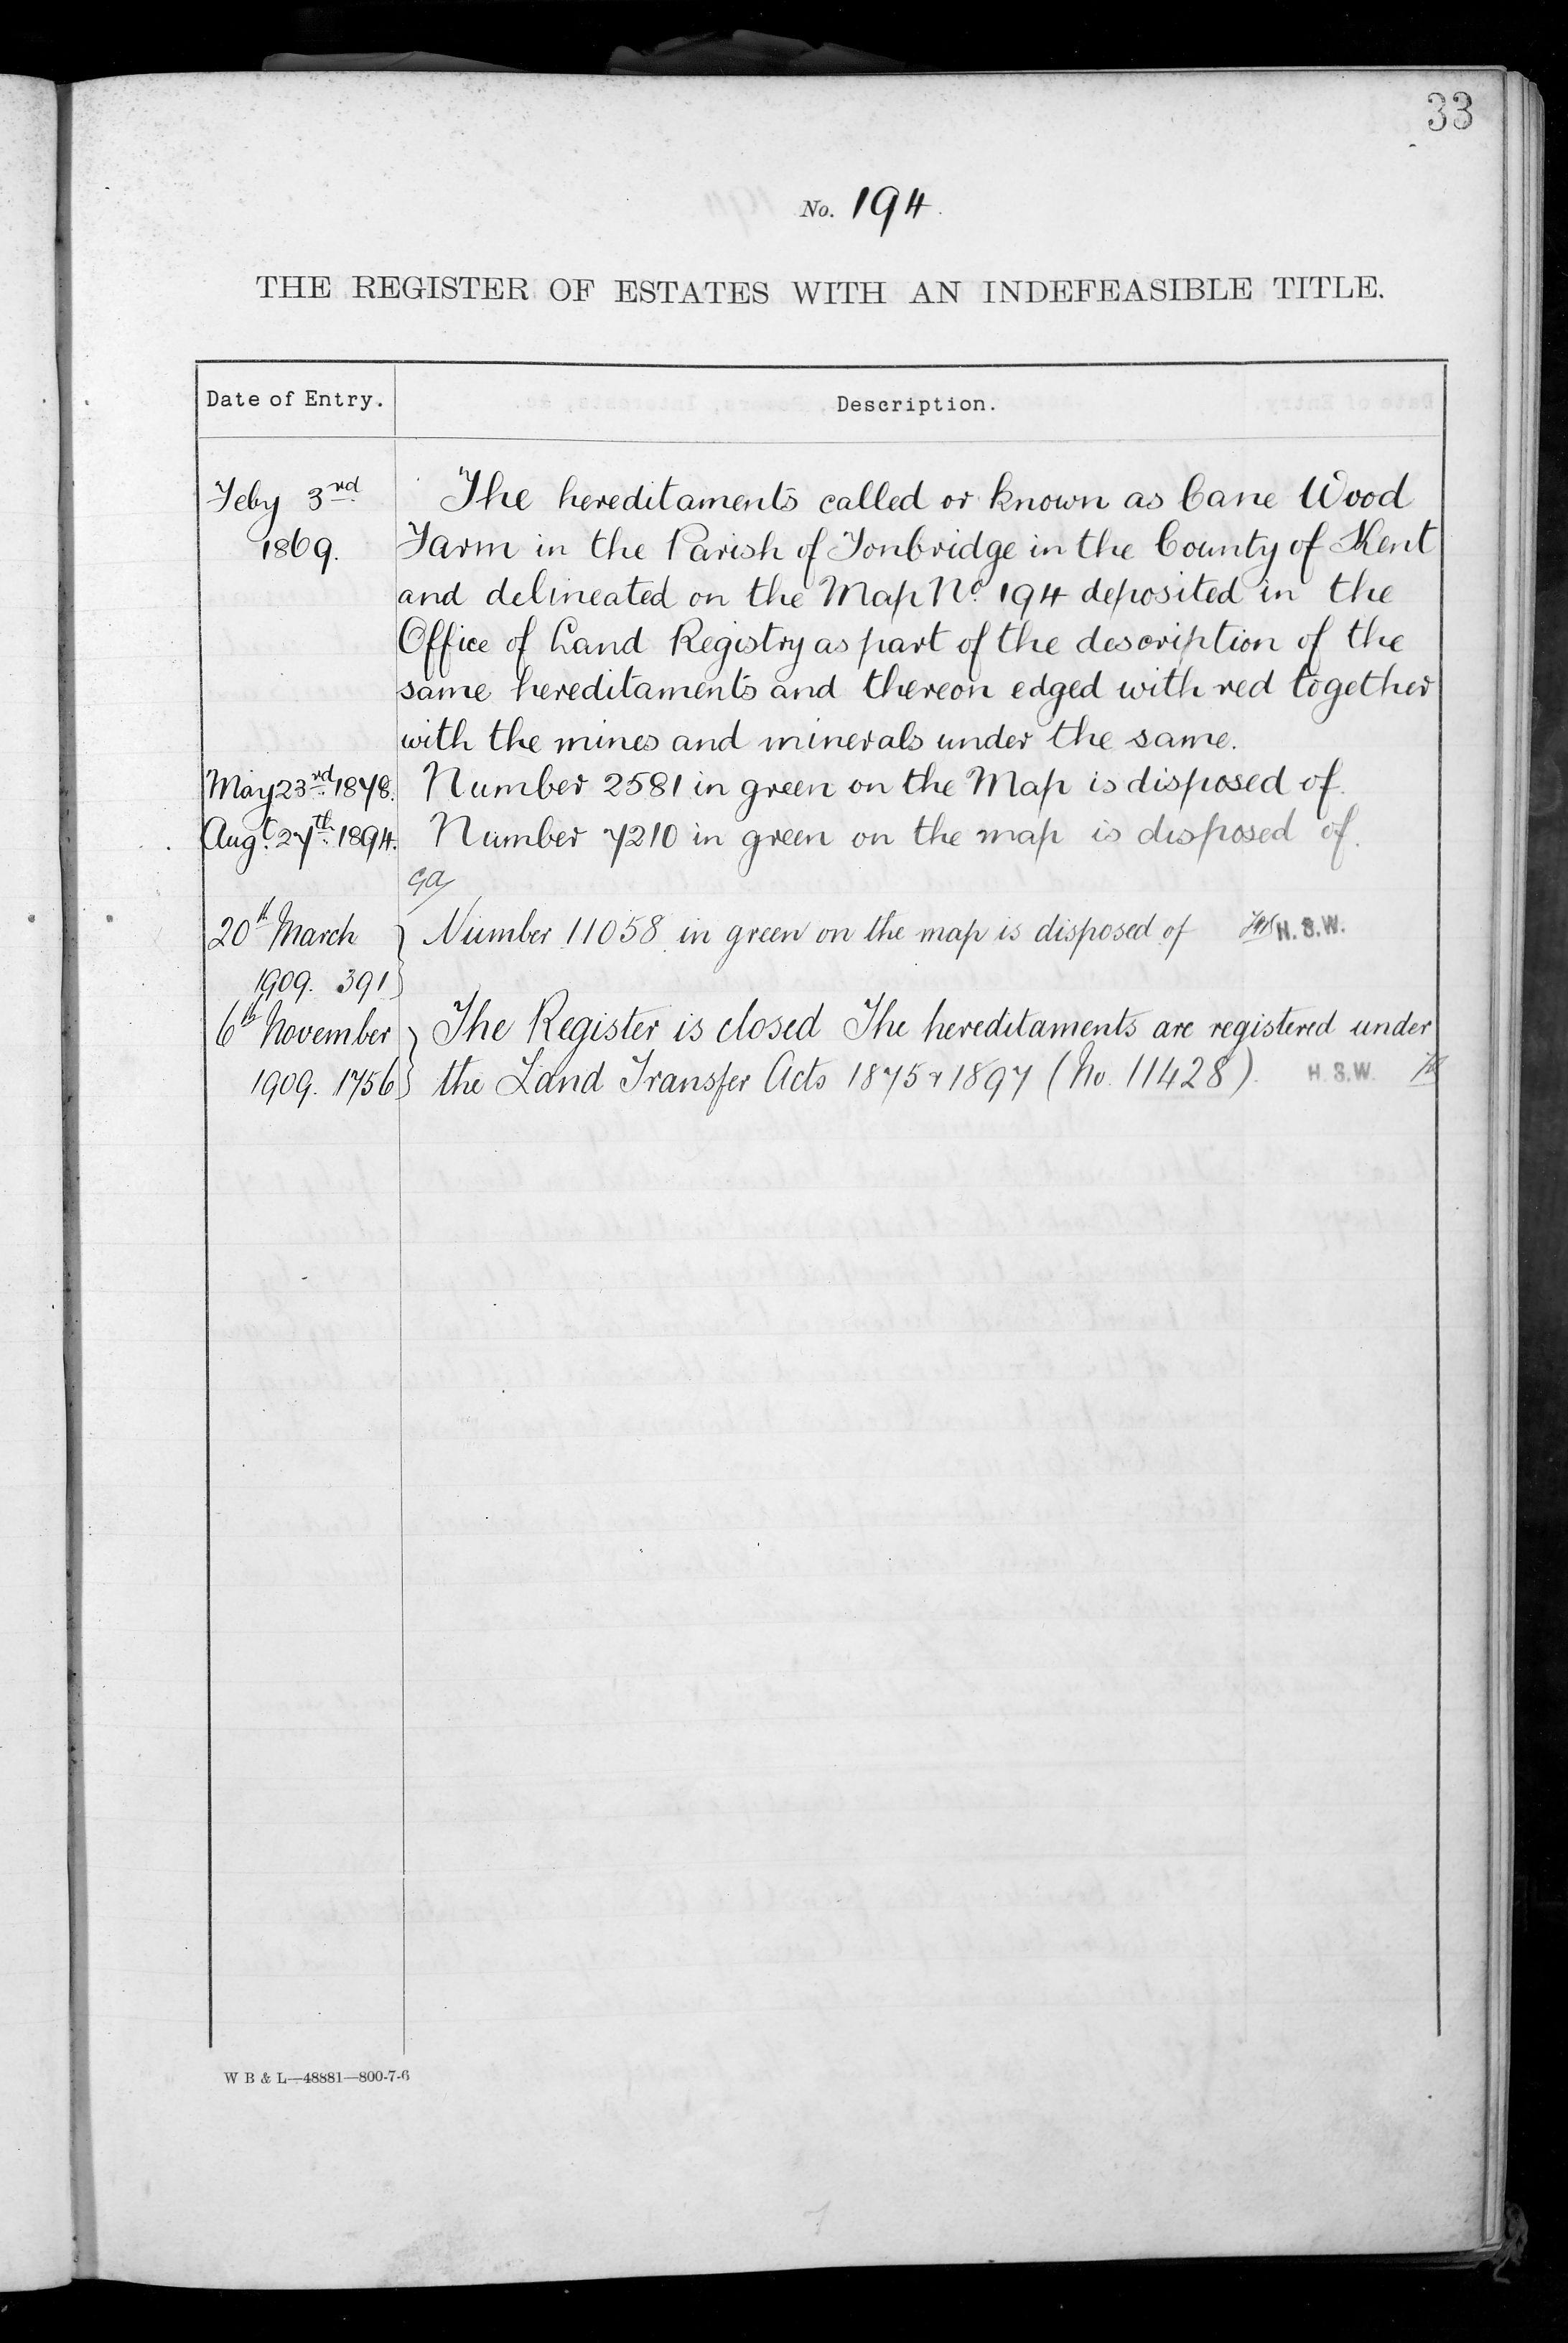 33
No. 194.
THE REGISTER OF ESTATES WITH AN INDEFEASIBLE TITLE.
Date of Entry. Description.
Feby 3rd The hereditaments called or known as Cane Wood
1869. Farm in the Parish of Tonbridge in the County of Kent
and delineated on the Map No. 194 deposited in the
Office of Land Registry as part of the description of the
same hereditaments and thereon edged with red together
with the mines and minerals under the same.
May 23rd 1878. Number 2581 in green on the Map is disposed of.
Augt. 27th 1894. Number 7210 in green on the map is disposed of.
20th March } Number 11058 in green on the map is disposed of H.S.W.
1909. 391 }
6th November } The Register is closed The hereditaments are registered under
1909. 1756 } the Land Transfer Acts 1875 & 1897 (No. 11428). H.S.W.
W B & L—48881—800-7-6